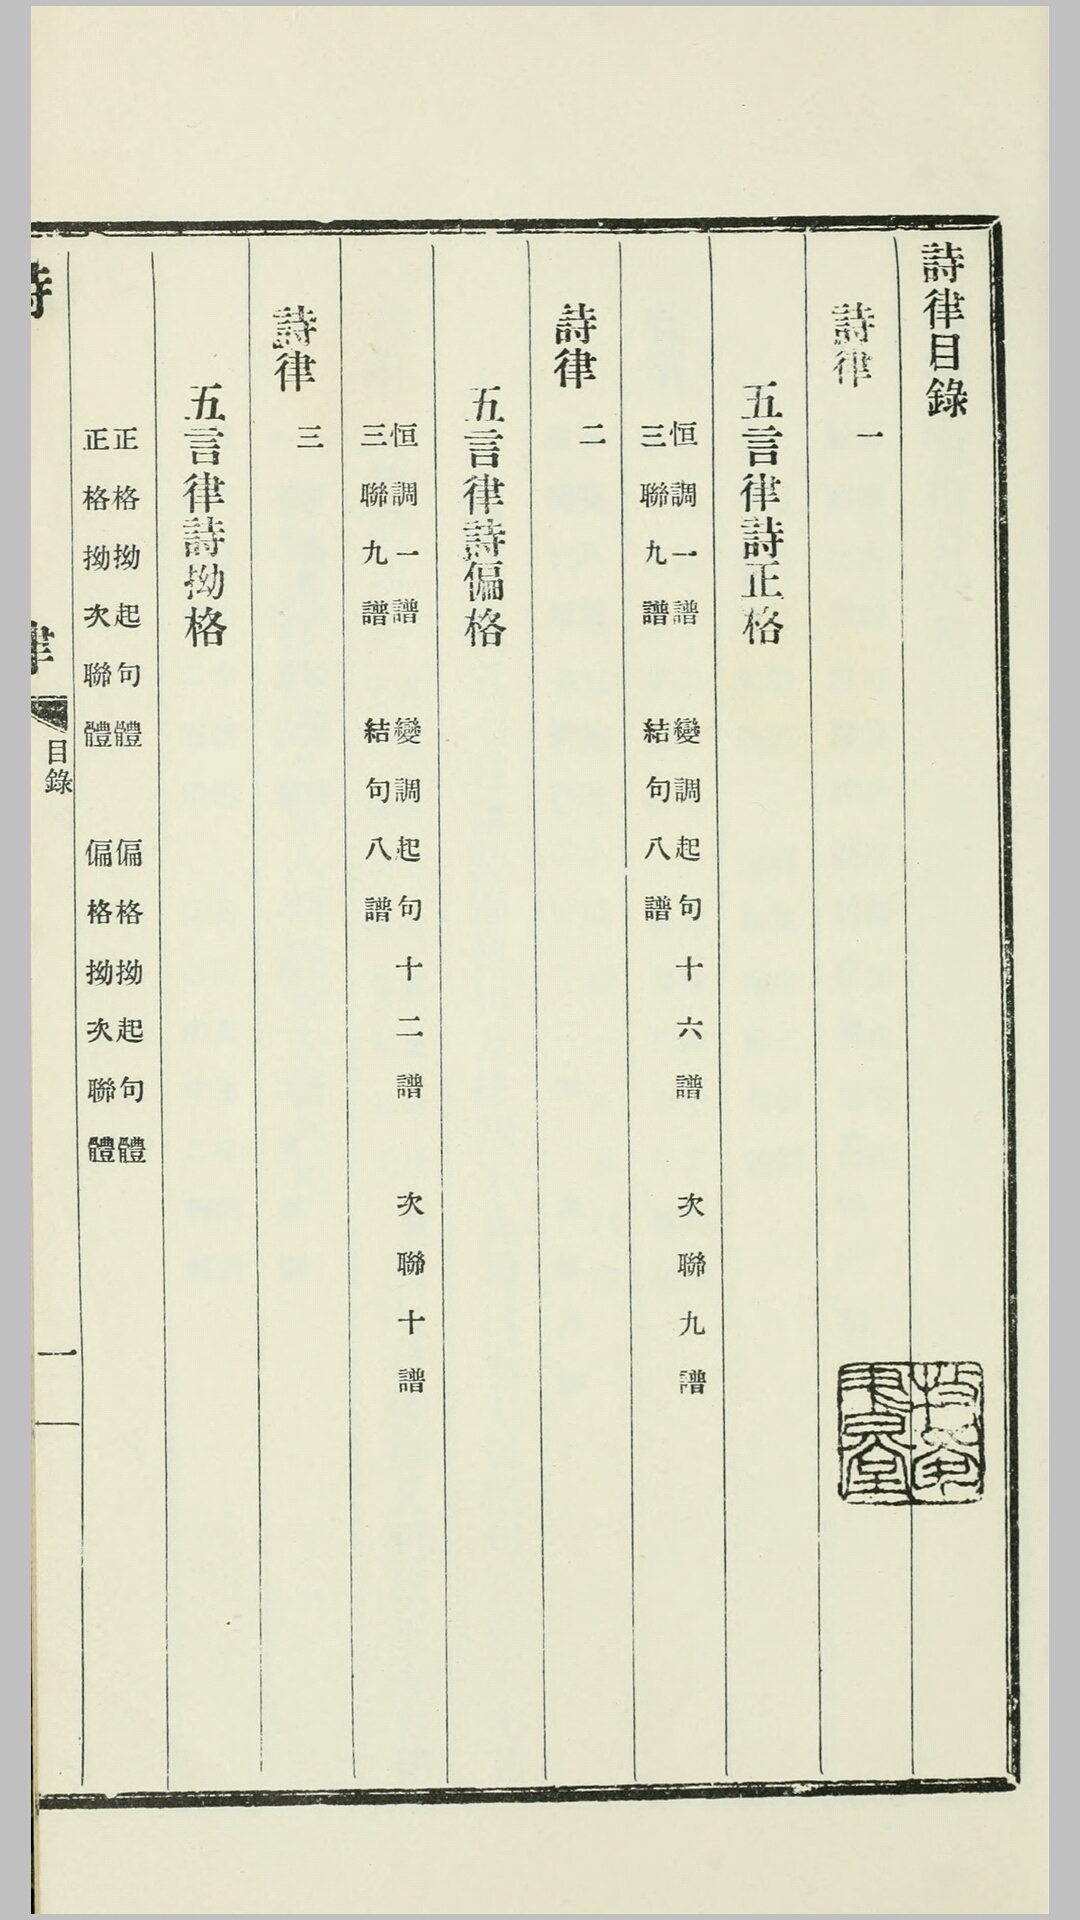 詩律目錄
詩律一
五言律詩正格
恒調一譜 變調起句十六譜 次聯九譜
三聯九譜 結句八譜
詩律二
五言律詩偏格
恒調一譜 變調起句十二譜 次聯十譜
三聯九譜 結句八譜
詩律三
五言律詩拗格
正格拗起句體 偏格拗起句體
正格拗次聯體 偏格拗次聯體
詩律 目錄 一